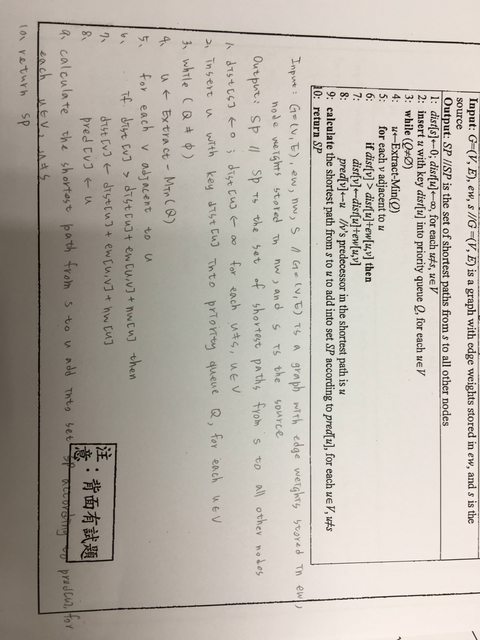 Input: G=(V, E), ew, s //G=(V, E) is a graph with edge weights stored in ew, and s is the
source
Output: SP //SP is the set of shortest paths from s to all other nodes
1: dist[s]←0; dist[u]←∞, for each u≠s, u∈V
2: insert u with key dist[u] into priority queue Q, for each u∈V
3: while (Q≠Ø)
4: u←Extract-Min(Q)
5: for each v adjacent to u
6: if dist[v] > dist[u]+ew[u,v] then
7: dist[v]←dist[u]+ew[u,v]
8: pred[v]←u //v's predecessor in the shortest path is u
9: calculate the shortest path from s to u to add into set SP according to pred[u], for each u∈V, u≠s
10: return SP
Input: G=(V,E), ew, nw, S // G=(V,E) is a graph with edge weights stored in ew,
node weights stored in nw, and s is the source
Output: Sp // Sp is the set of shortest paths from s to all other nodes
1. dist[s] ← 0; dist[u] ← ∞ for each u≠s, u∈V
2. insert u with key dist[u] into priority queue Q, for each u∈V
3. while (Q≠ϕ)
4. u ← Extract Min(Q)
5. for each v adjacent to u
6. if dist[v] > dist[u]+ew[u,v]+nw[u] then
7. dist[v] ← dist[u]+ew[u,v]+nw[u]
8. pred[v] ← u
9. calculate the shortest path from s to u add into set Sp according to pred[u], for
each u∈V, u≠s
10. return Sp
注：背面有試題
意